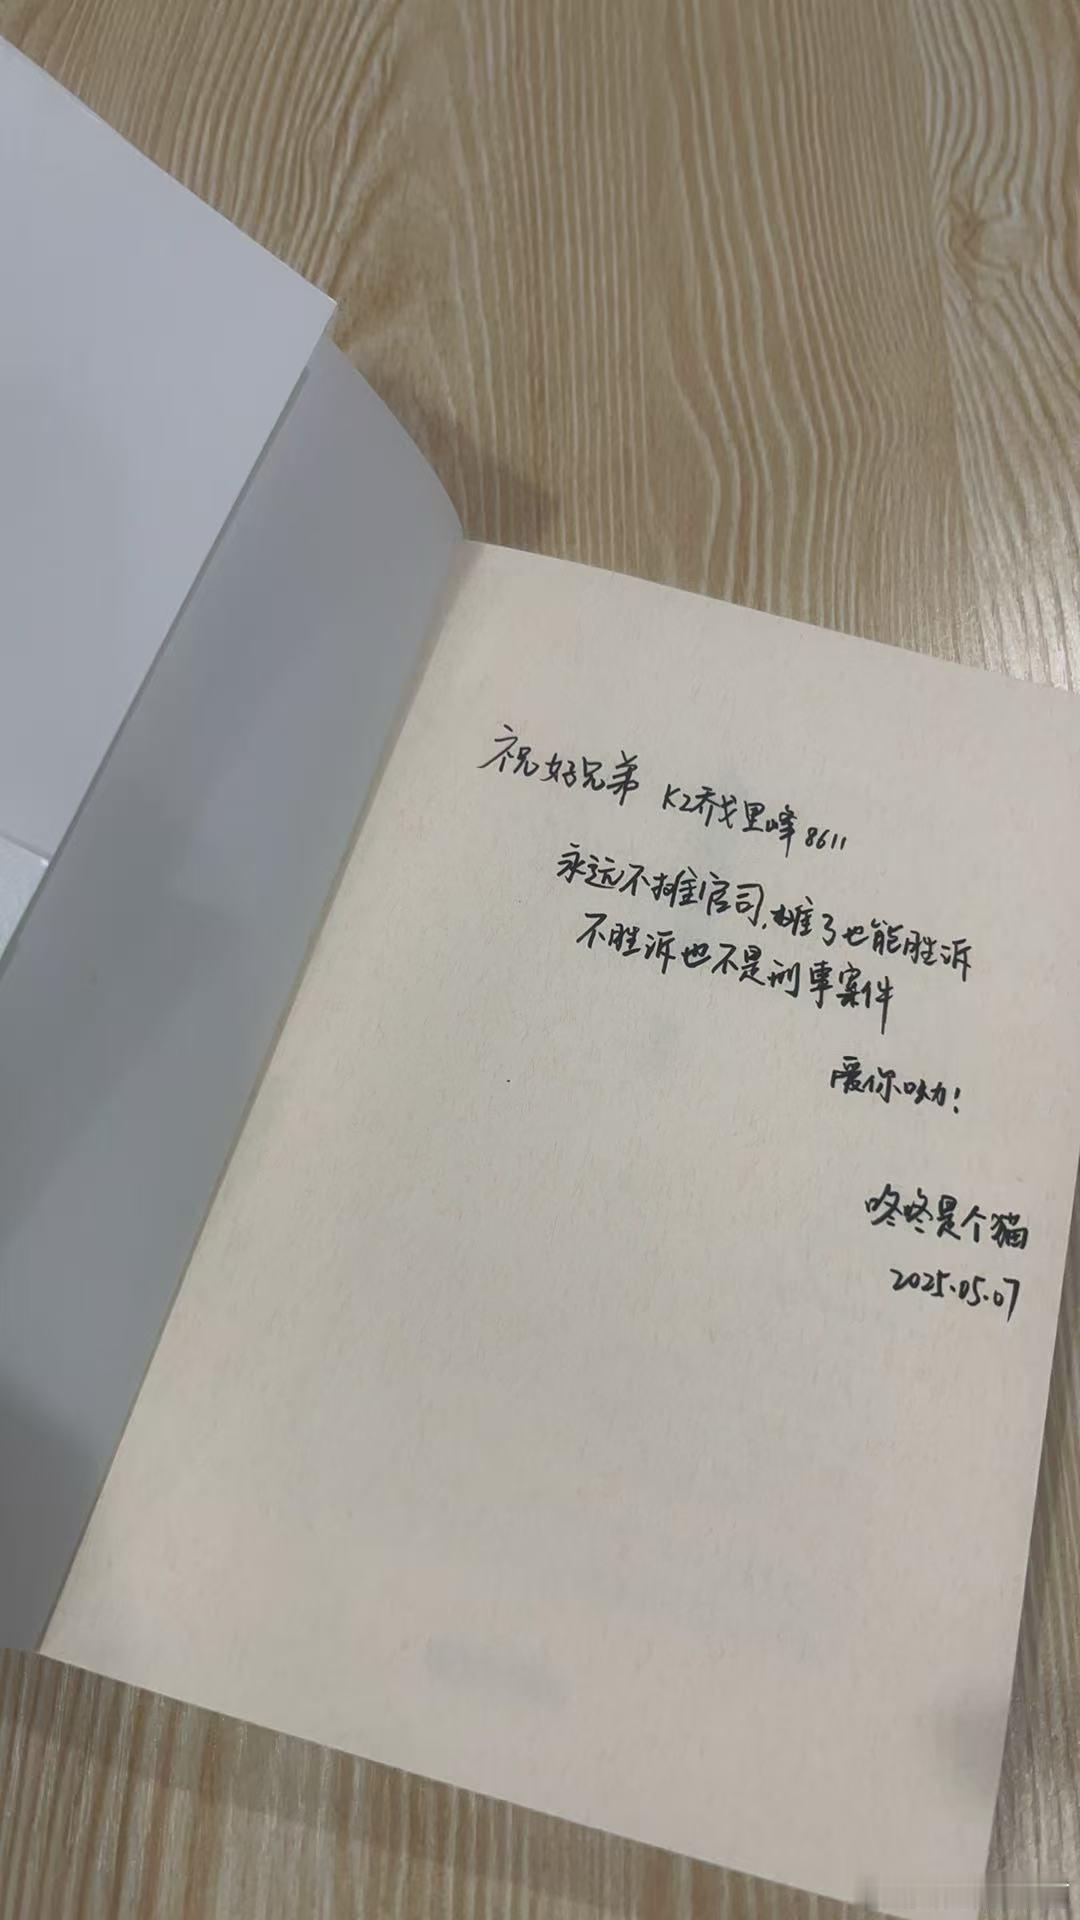 祝好兄弟 K2乔戈里峰8611
永远不摊官司,摊了也能胜诉
不胜诉也不是刑事案件
爱你呦!
咚咚是个猫
2025.05.07